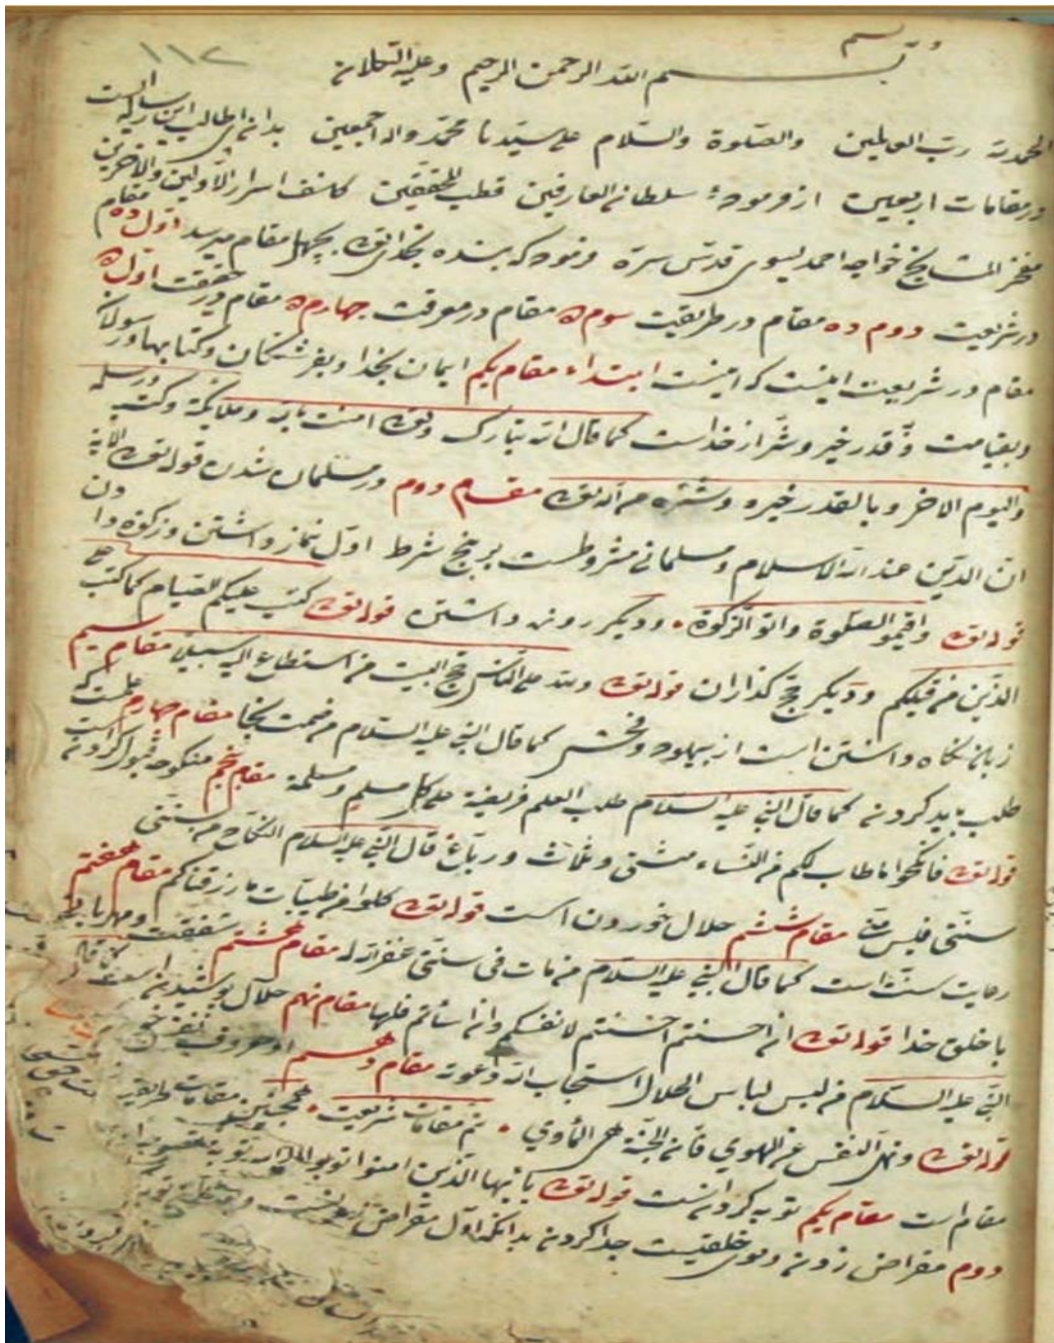 ١١٢
بسم الله الرحمن الرحيم وعليه التكلان
الحمد لله رب العالمين والصلوة والسلام على سيدنا محمد واله اجمعين بدانكه ای طالب این رساله ایست
در مقامات اربعین از فرمودۀ سلطان العارفین قطب المحققین کاشف اسرار الاولین والآخرین
مفخر المشایخ خواجه احمد یسوی قدس سره فرمود که بنده بخدای تعالی بچهل مقام میرسد اول ده مقام
در شریعت دوم ده مقام در طریقت سوم ده مقام در معرفت چهارم ده مقام در حقیقت اول ده
مقام در شریعت اینست که اینست ابتداء مقام یکم ایمان بخدا و بفرشتگان و کتابها و رسولان
وبقیامت و قدر خیر وشر از خداست کما قال الله تبارک وتعالی امنت بالله وملایکته وکتبه ورسله
والیوم الاخر وبالقدر خیره وشره من الله تعالی مقام دوم در مسلمان شدن قوله تعالی الآیة
ان الدین عند الله الاسلام ومسلمانی مشروطست بر پنج شرط اول نماز داشتن وزکوة دادن
قوله تعالی واقیموا الصلوة واتوا الزکوة ودیگر روزه داشتن قوله تعالی کتب علیکم الصیام کما کتب علی
الذین من قبلکم ودیگر حج گذاردن قوله تعالی ولله علی الناس حج البیت من استطاع الیه سبیلا مقام سیم
زبان نگاه داشتن است از بیهوده وفحش کما قال النبی علیه السلام من صمت نجا مقام چهارم علمست که
طلب باید کردن کما قال النبی علیه السلام طلب العلم فریضة علی کل مسلم ومسلمة مقام پنجم منکوحه قبول کردن است
قوله تعالی فانکحوا ما طاب لکم من النساء مثنی وثلاث ورباع قال النبی علیه السلام النکاح من سنتی
سنتی فلیس منی مقام ششم حلال خوردن است قوله تعالی کلوا من طیبات ما رزقناکم مقام هفتم
رعایت سنت است کما قال النبی علیه السلام من مات فی سنتی غفر الله له مقام هشتم شفقت ومهربانی
با خلق خدا قوله تعالی ان احسنتم احسنتم لانفسکم وان اسأتم فلها مقام نهم حلال پوشیدن است کما قال
النبی علیه السلام من لبس لباس الحلال استجاب الله دعوته مقام دهم امر معروف
قوله تعالی ونهی النفس عن الهوی فان الجنة هی المأوی تم مقامات شریعت همچنین مقامات طریقت
مقام است مقام یکم توبه کردنست قوله تعالی یا ایها الذین امنوا توبوا الی الله توبة نصوحا
دوم مقراض زدن وموی خلقیت جدا کردن بدانکه اول مقراض